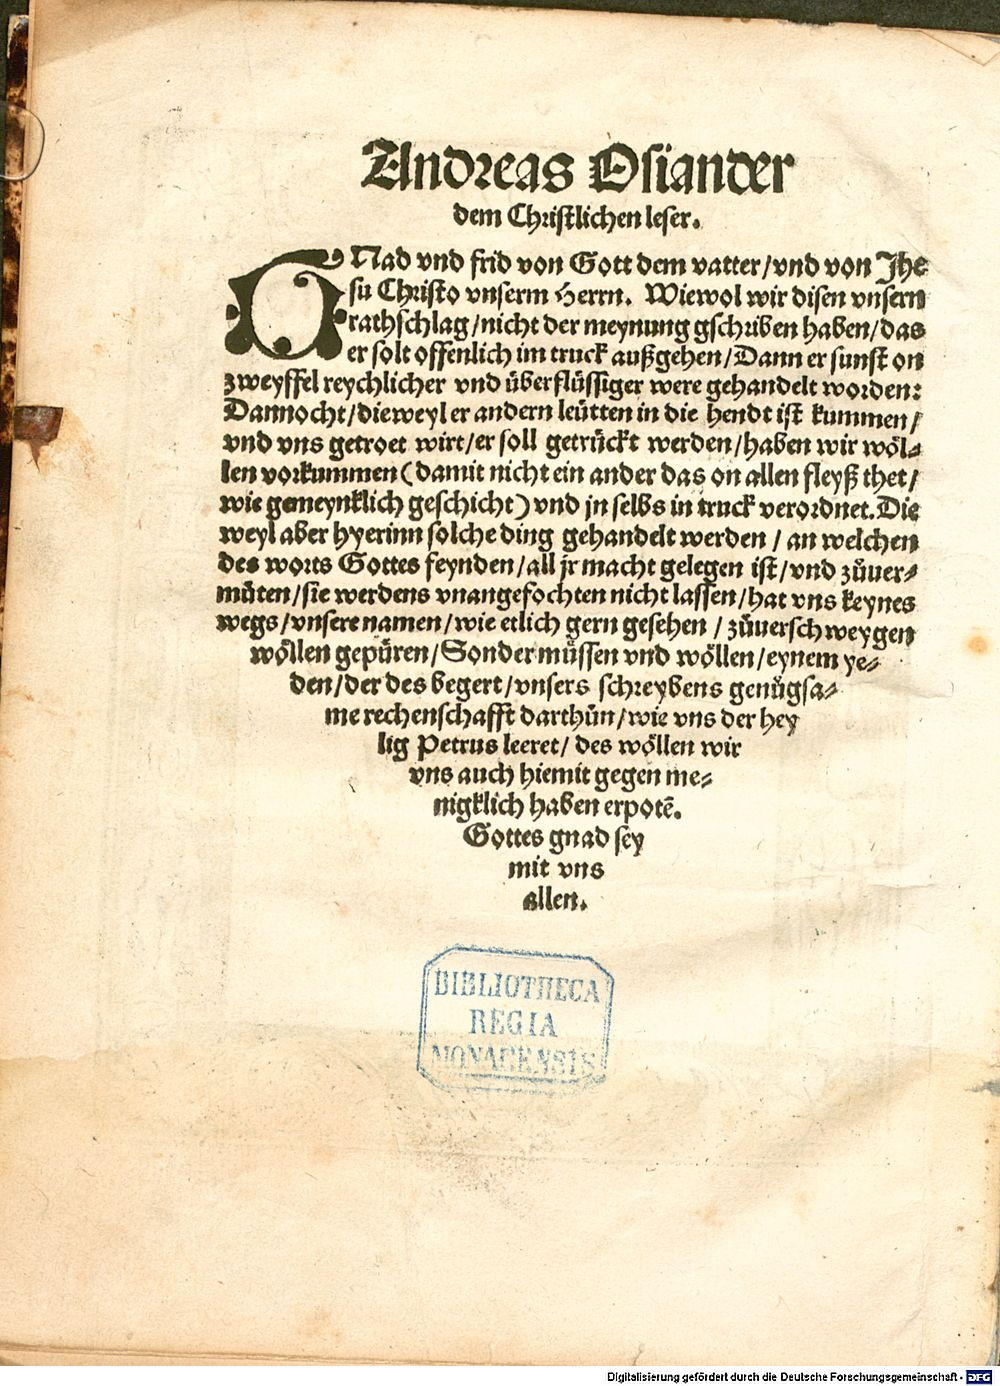 Andreas Osiander
dem Christlichen leser.
GNad vnd frid von Gott dem vatter/vnd von Jhe
su Christo vnserm Herrn. Wiewol wir disen vnsern
rathschlag/nicht der meynung gschriben haben/das
er solt offenlich im truck außgehen/Dann er sunst on
zweyffel reychlicher vnd überflüssiger were gehandelt worden:
Dannocht/dieweyl er andern leütten in die hendt ist kummen/
vnd vns getroet wirt/er soll getrückt werden/haben wir wöl-
len vorkummen (damit nicht ein ander das on allen fleyß thet/
wie gemeynklich geschicht) vnd jn selbs in truck verordnet. Die
weyl aber hyerinn solche ding gehandelt werden / an welchen
des worts Gottes feynden/all jr macht gelegen ist/vnd zůuer-
můten/sie werdens vnangefochten nicht lassen/hat vns keynes
wegs/vnsere namen/wie etlich gern gesehen / zůuerschweygen
wöllen gepüren/Sonder müssen vnd wöllen/eynem ye-
den/der des begert/vnsers schreybens genůgsa-
me rechenschafft darthůn/wie vns der hey
lig Petrus leeret/ des wöllen wir
vns auch hiemit gegen me-
nigklich haben erpotē.
Gottes gnad sey
mit vns
allen.
BIBLIOTHECA
REGIA
MONACENSIS
Digitalisierung gefördert durch die Deutsche Forschungsgemeinschaft - DFG